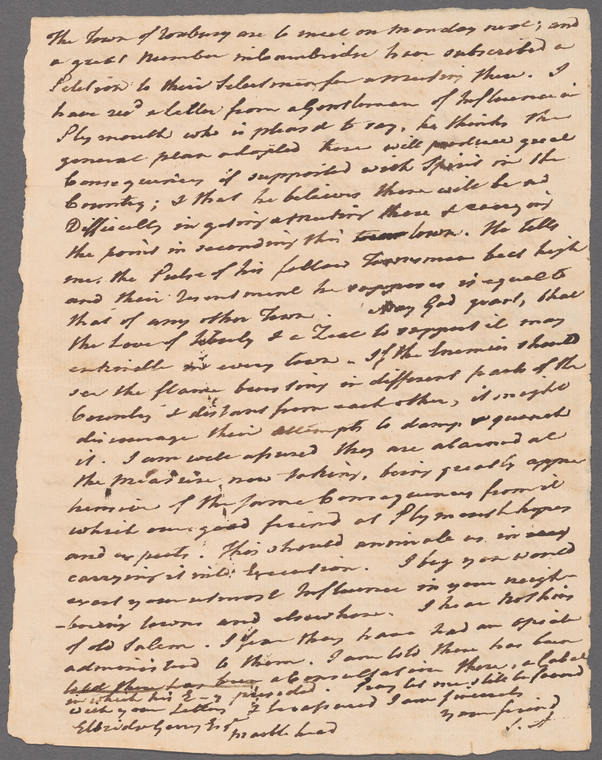 The Town of Roxbury are to meet on Monday next; and
a great Number in Cambridge have subscribed a
Petition to their Selectmen for a meeting there. I
have recd a letter from a Gentleman of Influence in
Plymouth who is pleasd to say, he thinks the
general plan adopted there will produce good
Consequences if supported with Spirit in the
Country; & that he believes there will be no
Difficulty in getting a meeting there & carrying
the point in seconding this town. He tells
me, the Pulse of his fellow Townsmen beat high
and their resentment he supposes is equal to
that of any other Town. May God grant, that
the Love of Liberty & a Zeal to support it may
enkindle in every town. If the Enemies should
see the flame bursting in different parts of the
Country & distant from each other, it might
discourage their attempts to damp & quench
it. I am well assured they are alarmed at
the Measure now taking, being greatly appre
hensive of the same Consequences from it
which our good friend at Plymouth hopes
and expects. This should animate us in
carrying it into Execution. I beg you would
exert your utmost Influence in your neigh-
-boring towns and elsewhere. I hear Nothing
of old Salem. I fear they have had an opiate
administred to them. I am told there has been
told there has been a Consultation there, a Cabal
in which his E-y presided. Pray let me still be favord
with your Letters & be assured I am sincerely
your friend
Elbridge Gerry Esqr S. A
Marblehead